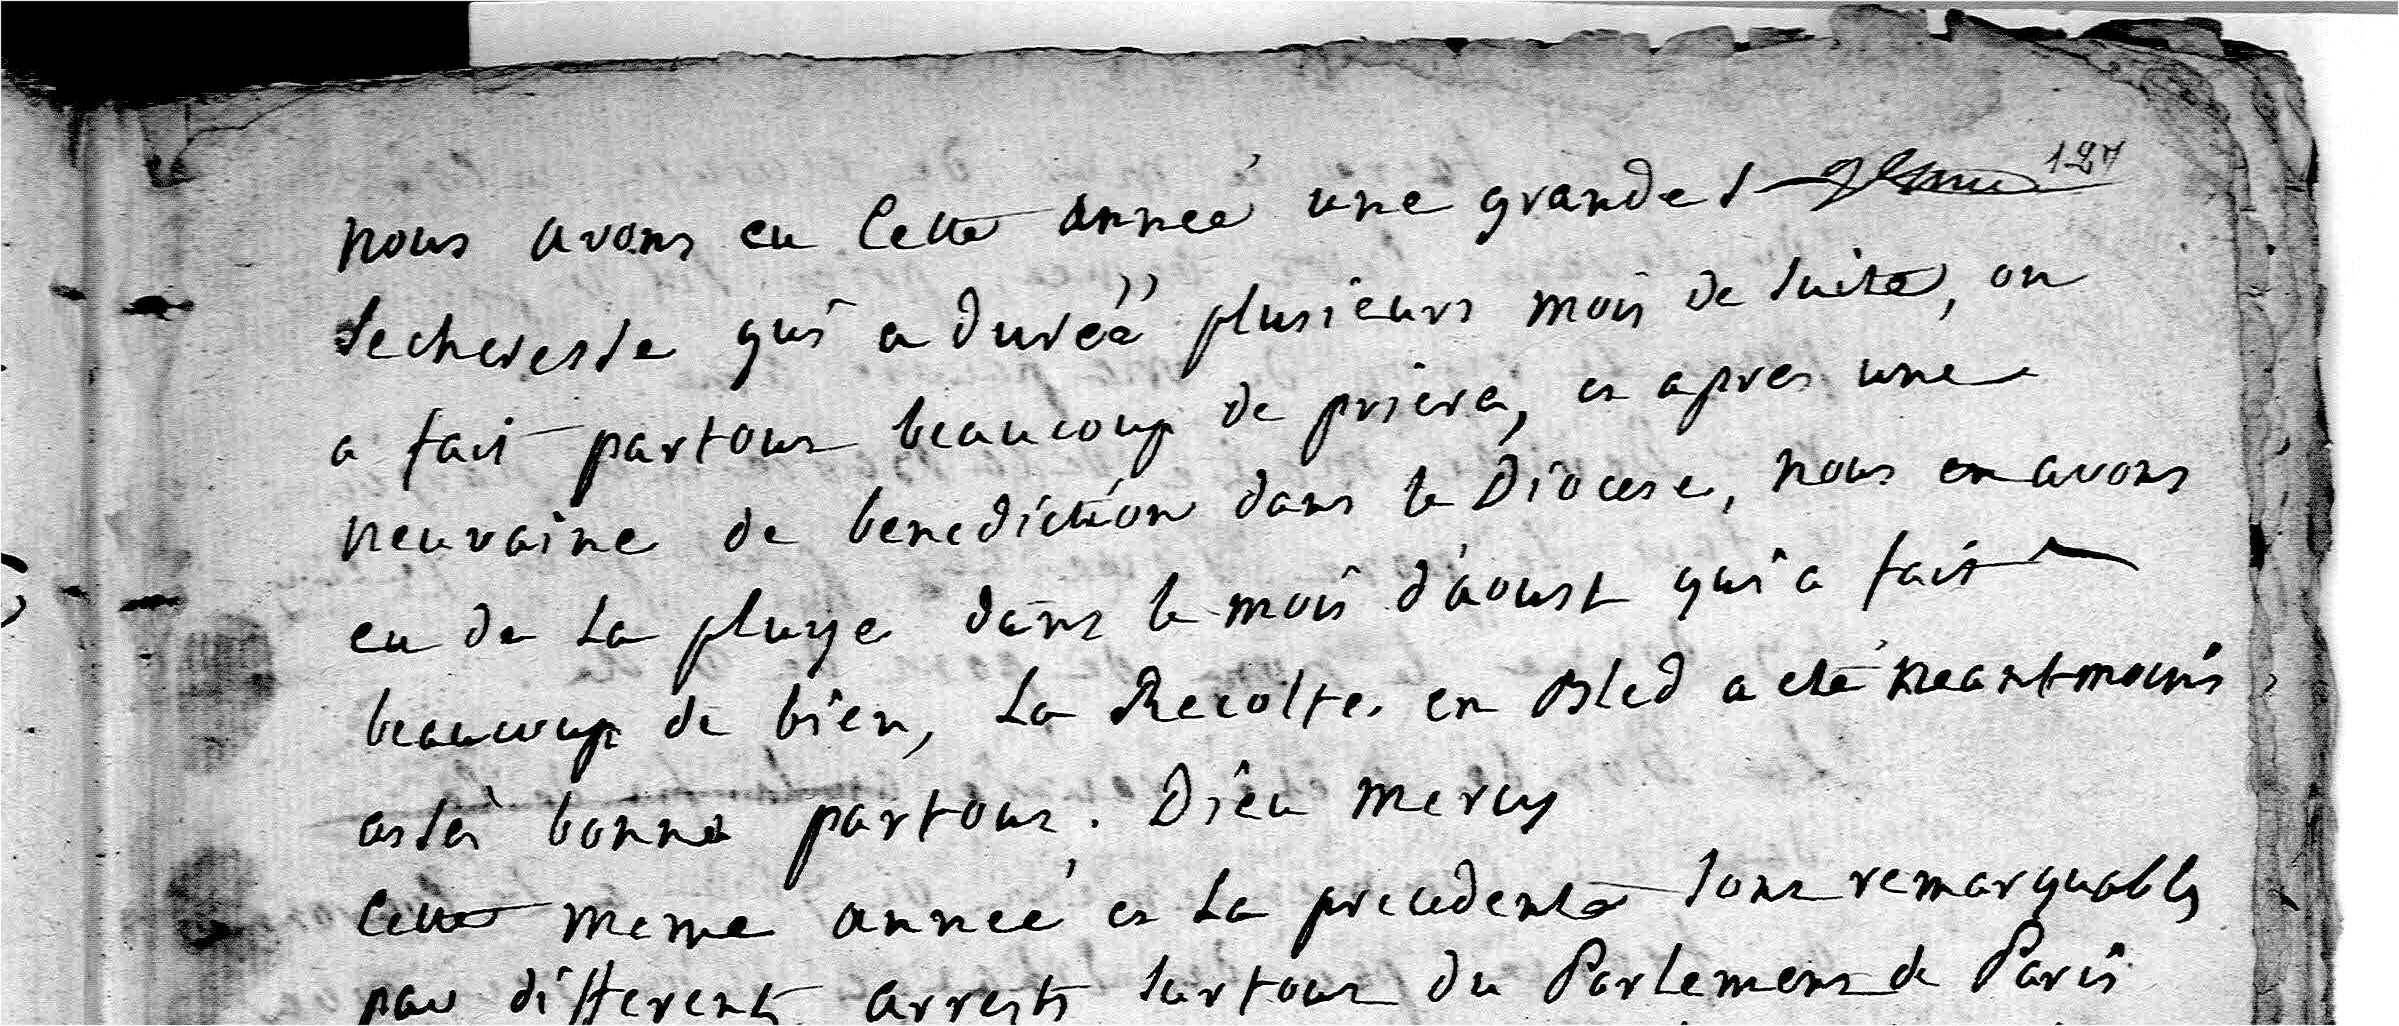 127
nous avons eu cette anneé une grande
secheresse qui a dureé plusieurs mois de suite, on
a fait partout beaucoup de priere, et apres une
neuvaine de benediction dans le Diocese, nous en avons
eu de la pluye dans le mois d'aoust qui a fait
beaucoup de bien, la Recolte en Bled a eté neantmoins
assés bonne partout. Dieu mercy
cette meme anneé et la precedente sont remarquables
par different arrests surtout du Parlement de Paris